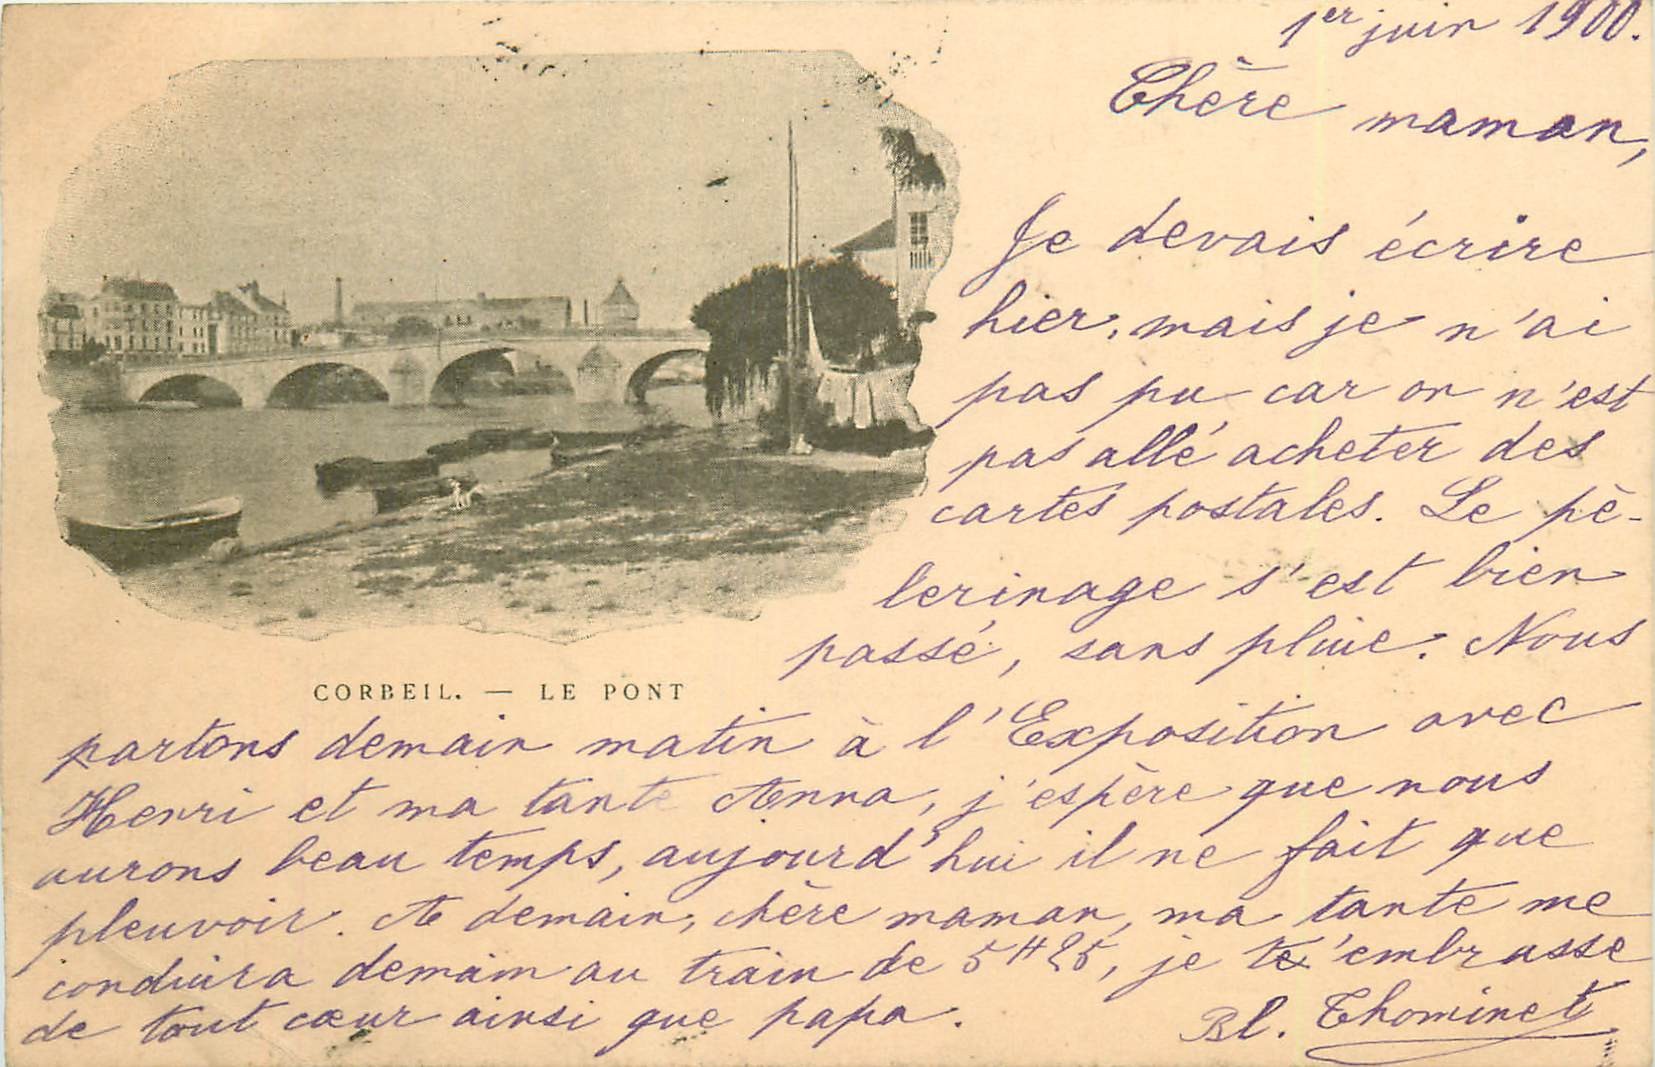 1er juin 1900.
Chère maman,
Je devais écrire
hier, mais je n'ai
pas pu car on n'est
pas allé acheter des
cartes postales. Le pè-
lerinage s'est bien
passé, sans pluie. Nous
CORBEIL. — LE PONT
partons demain matin à l'Exposition avec
Henri et ma tante Anna, j'espère que nous
aurons beau temps, aujourd'hui il ne fait que
pleuvoir. A demain, chère maman, ma tante me
conduira demain au train de 5H25, je t'embrasse
de tout cœur ainsi que papa.
Bl. Thominet